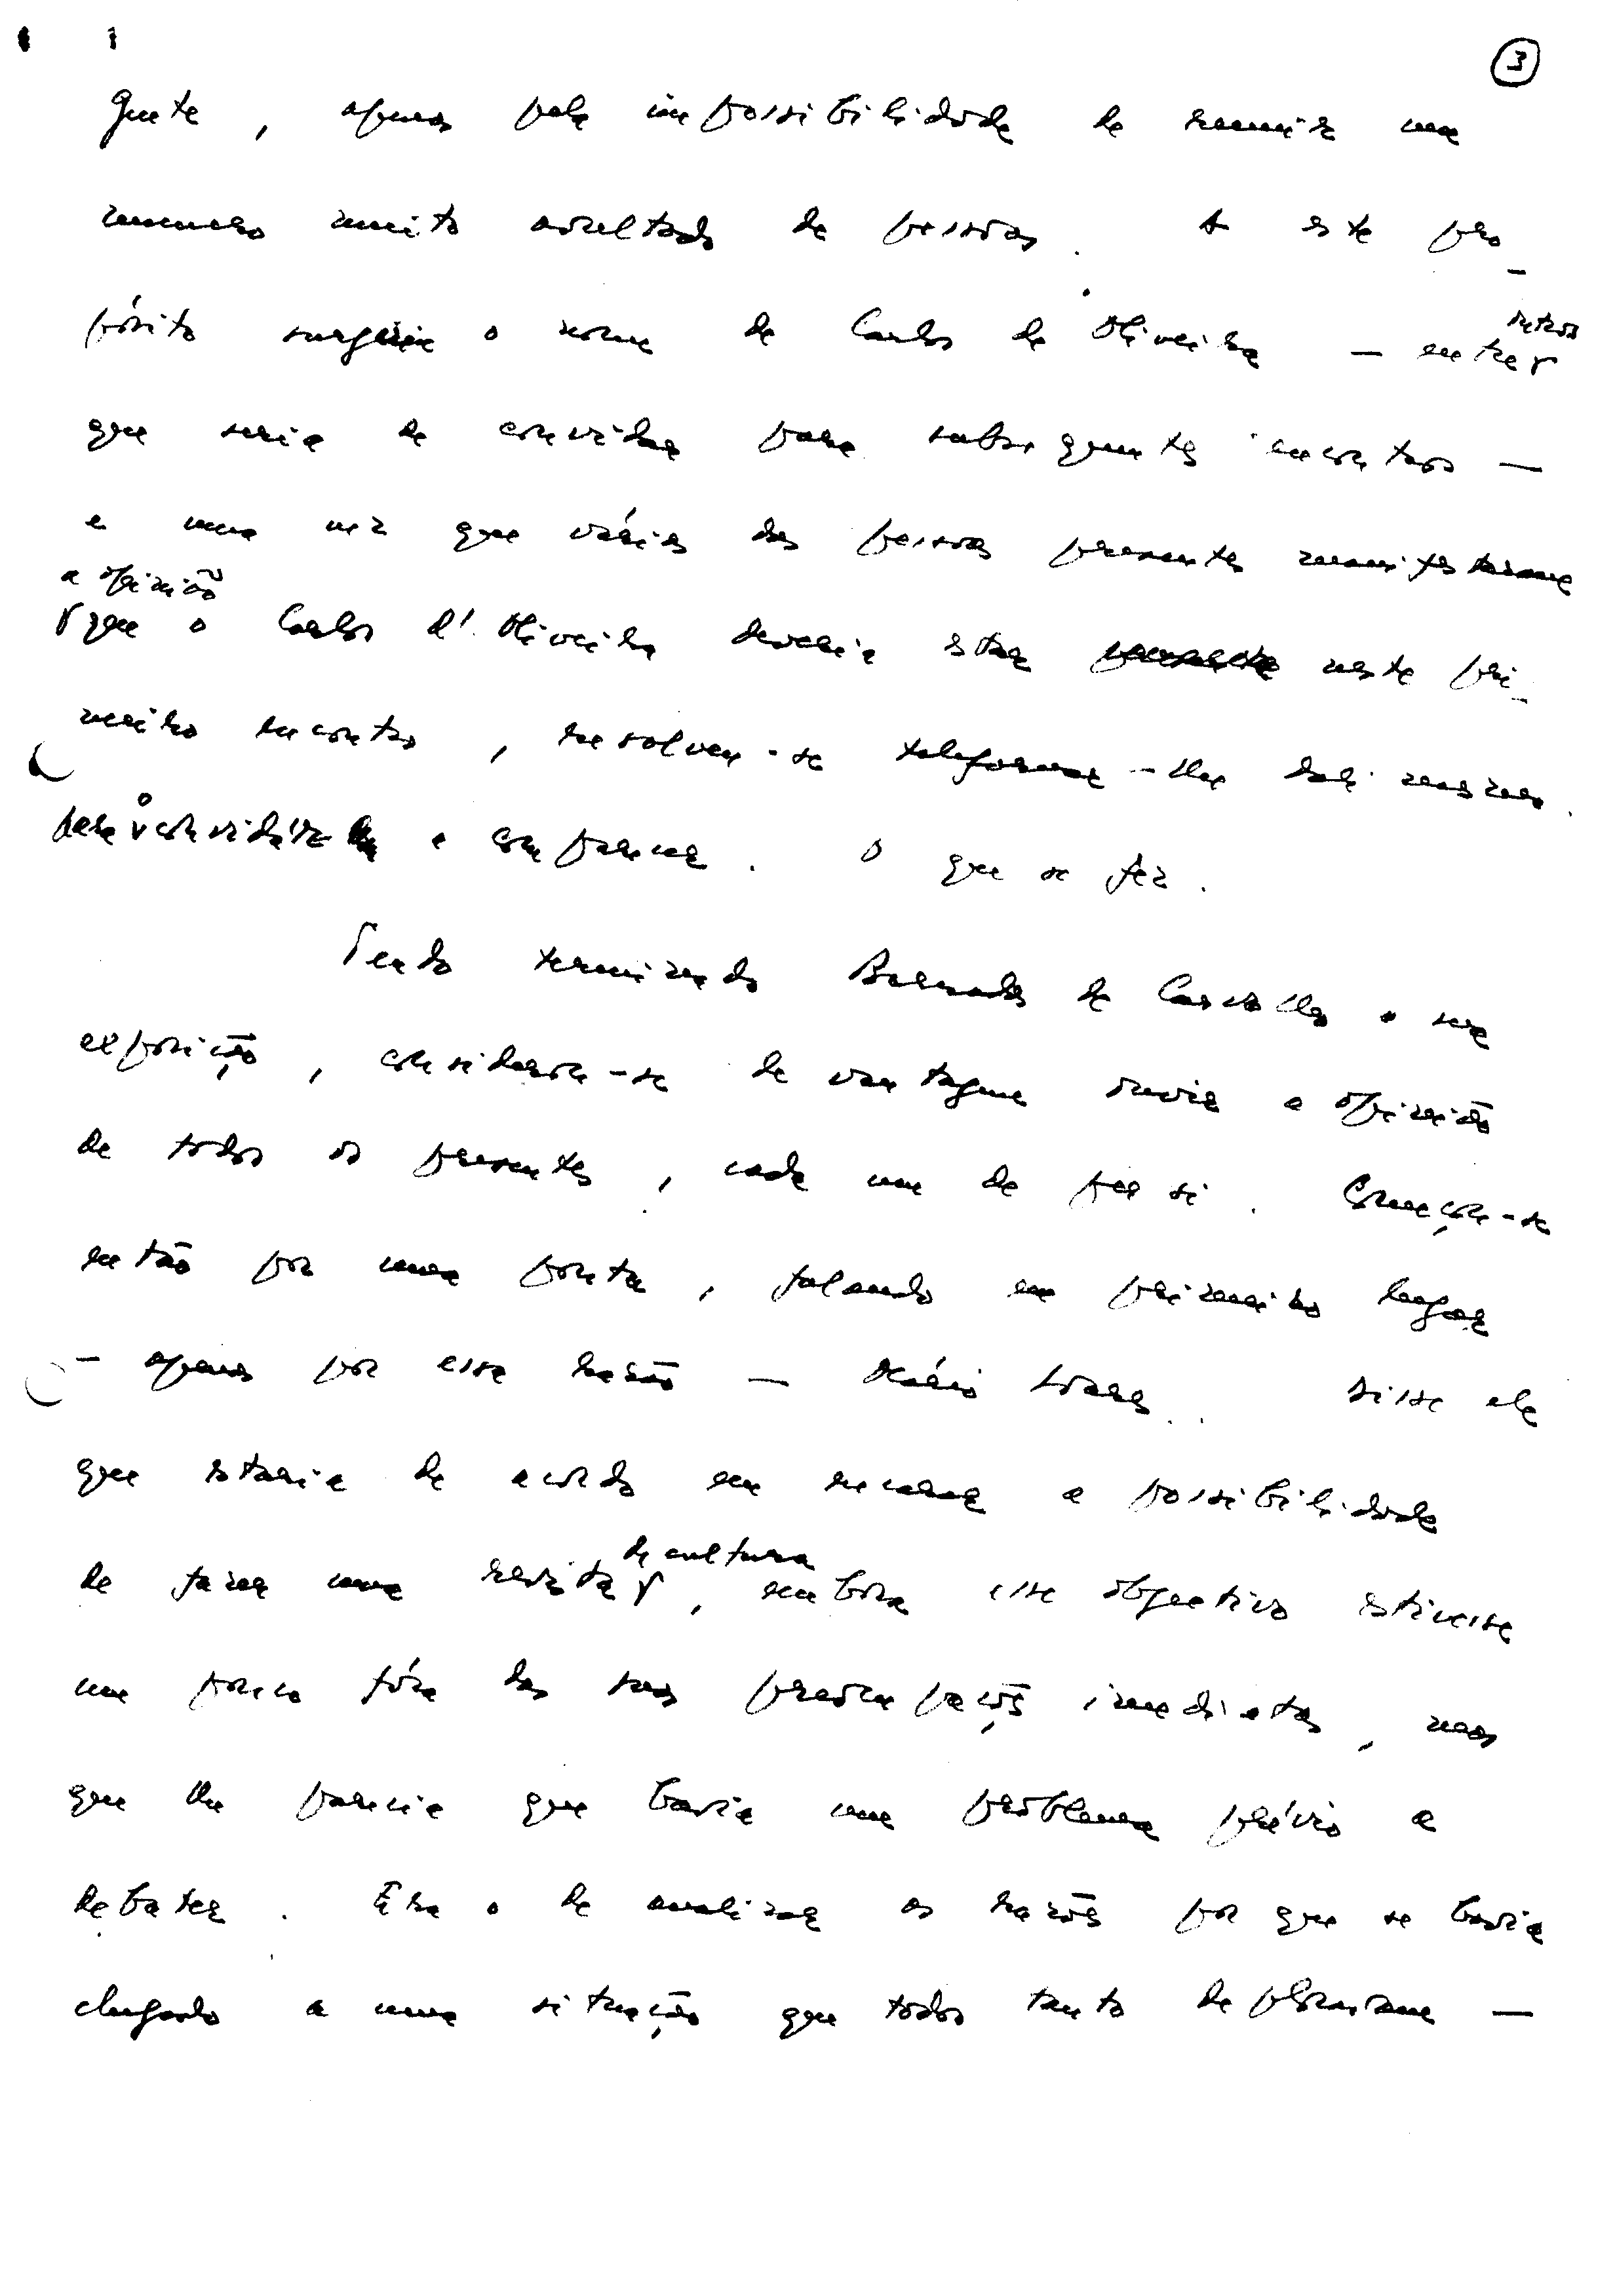 3
gente, apenas pela impossibilidade de reunir um
numero muito avultado de pessoas. A este pro-
pósito surgiu o nome de Carlos de Oliveira — entre outros
que seria de convidar para subsequentes encontros —
e uma vez que várias das pessoas presentes manifestaram
a opinião
que o Carlos d'Oliveira deveria estar presente neste pri-
meiro encontro, resolveu-se telefonar-lhe dali mesmo
para o convidar a comparecer. O que se fez.
Tendo terminado Barradas de Carvalho a sua
exposição, considerou-se de vantagem ouvir a opinião
de todos os presentes, cada um de per si. Começou-se
então por uma ponta, falando em primeiro lugar
— apenas por essa razão — Mário Soares. Disse ele
que estaria de acordo em encarar a possibilidade
de cultura
de fazer uma revista, embora esse objectivo estivesse
um pouco fóra das suas preocupações imediatas, mas
que lhe parecia que havia um problema prévio a
debater. Era o de analizar as razões por que se havia
chegado a uma situação que todos tanto deploravam —